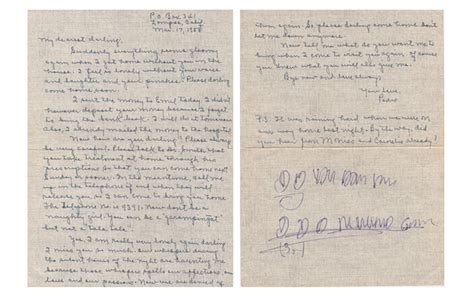 P.O. Box 321
Lompoc, Calif.
Mar. 17, 1958
My dearest darling,
Suddenly everything seems gloomy
again when I got home without you in the
house. I feel so lonely without your voice
and laughter and your
Please darling
come home, soon.
I sent the money to Emil today. I did
however deposit your money because I forgot
to bring the bank book. I will do it tomorrow.
Also, I already mailed the money to the hospital.
Now how are you darling? Please always
be very careful. Please talk to Dr. Smith that
you take treatment at home through his
prescriptions so that you can come home next
Sunday or soon. In the meantime, call me
up in the telephone if and when they will
release you so I can come to bring you home.
The telephone no. is 9391. Now don't be a
naughty girl. You can be a
but not a
Yes, I am really very lonely you darling.
I miss you so much. Such whisper during
the silent hours of the night are haunting me
because those whispers spells our affections, our
love and our passion. Now we are denied of
them again. So please darling come home don't
let me down anymore.
Now tell me what do you want me to
bring when I come to visit you again of course
you know what you will also give me.
Bye now and love always.
Your love,
Pedro
P.S. It was running hard when
my way home last night. By the way, did
you hear from
and
already?